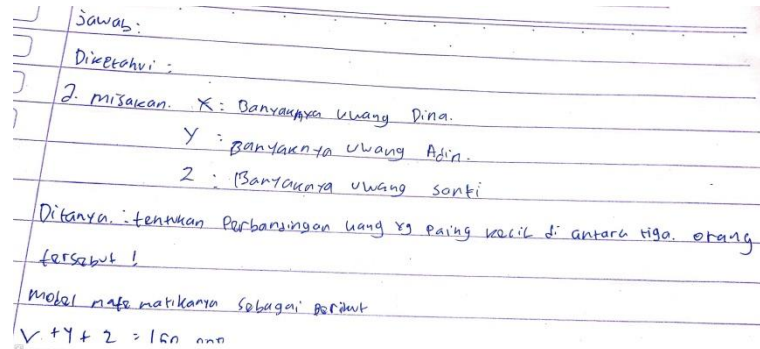 Jawab:
Diketahui :
2. misakan. X : Banyaknya Uwang Dina.
Y : Banyaknya Uwang Adin.
Z : Banyaknya Uwang Santi
Ditanya. : tentukan Perbandingan uang yg Paing kecil di antara tiga. orang
tersebut !
Model matematikanya Sebagai Berikut
+ Y + Z =